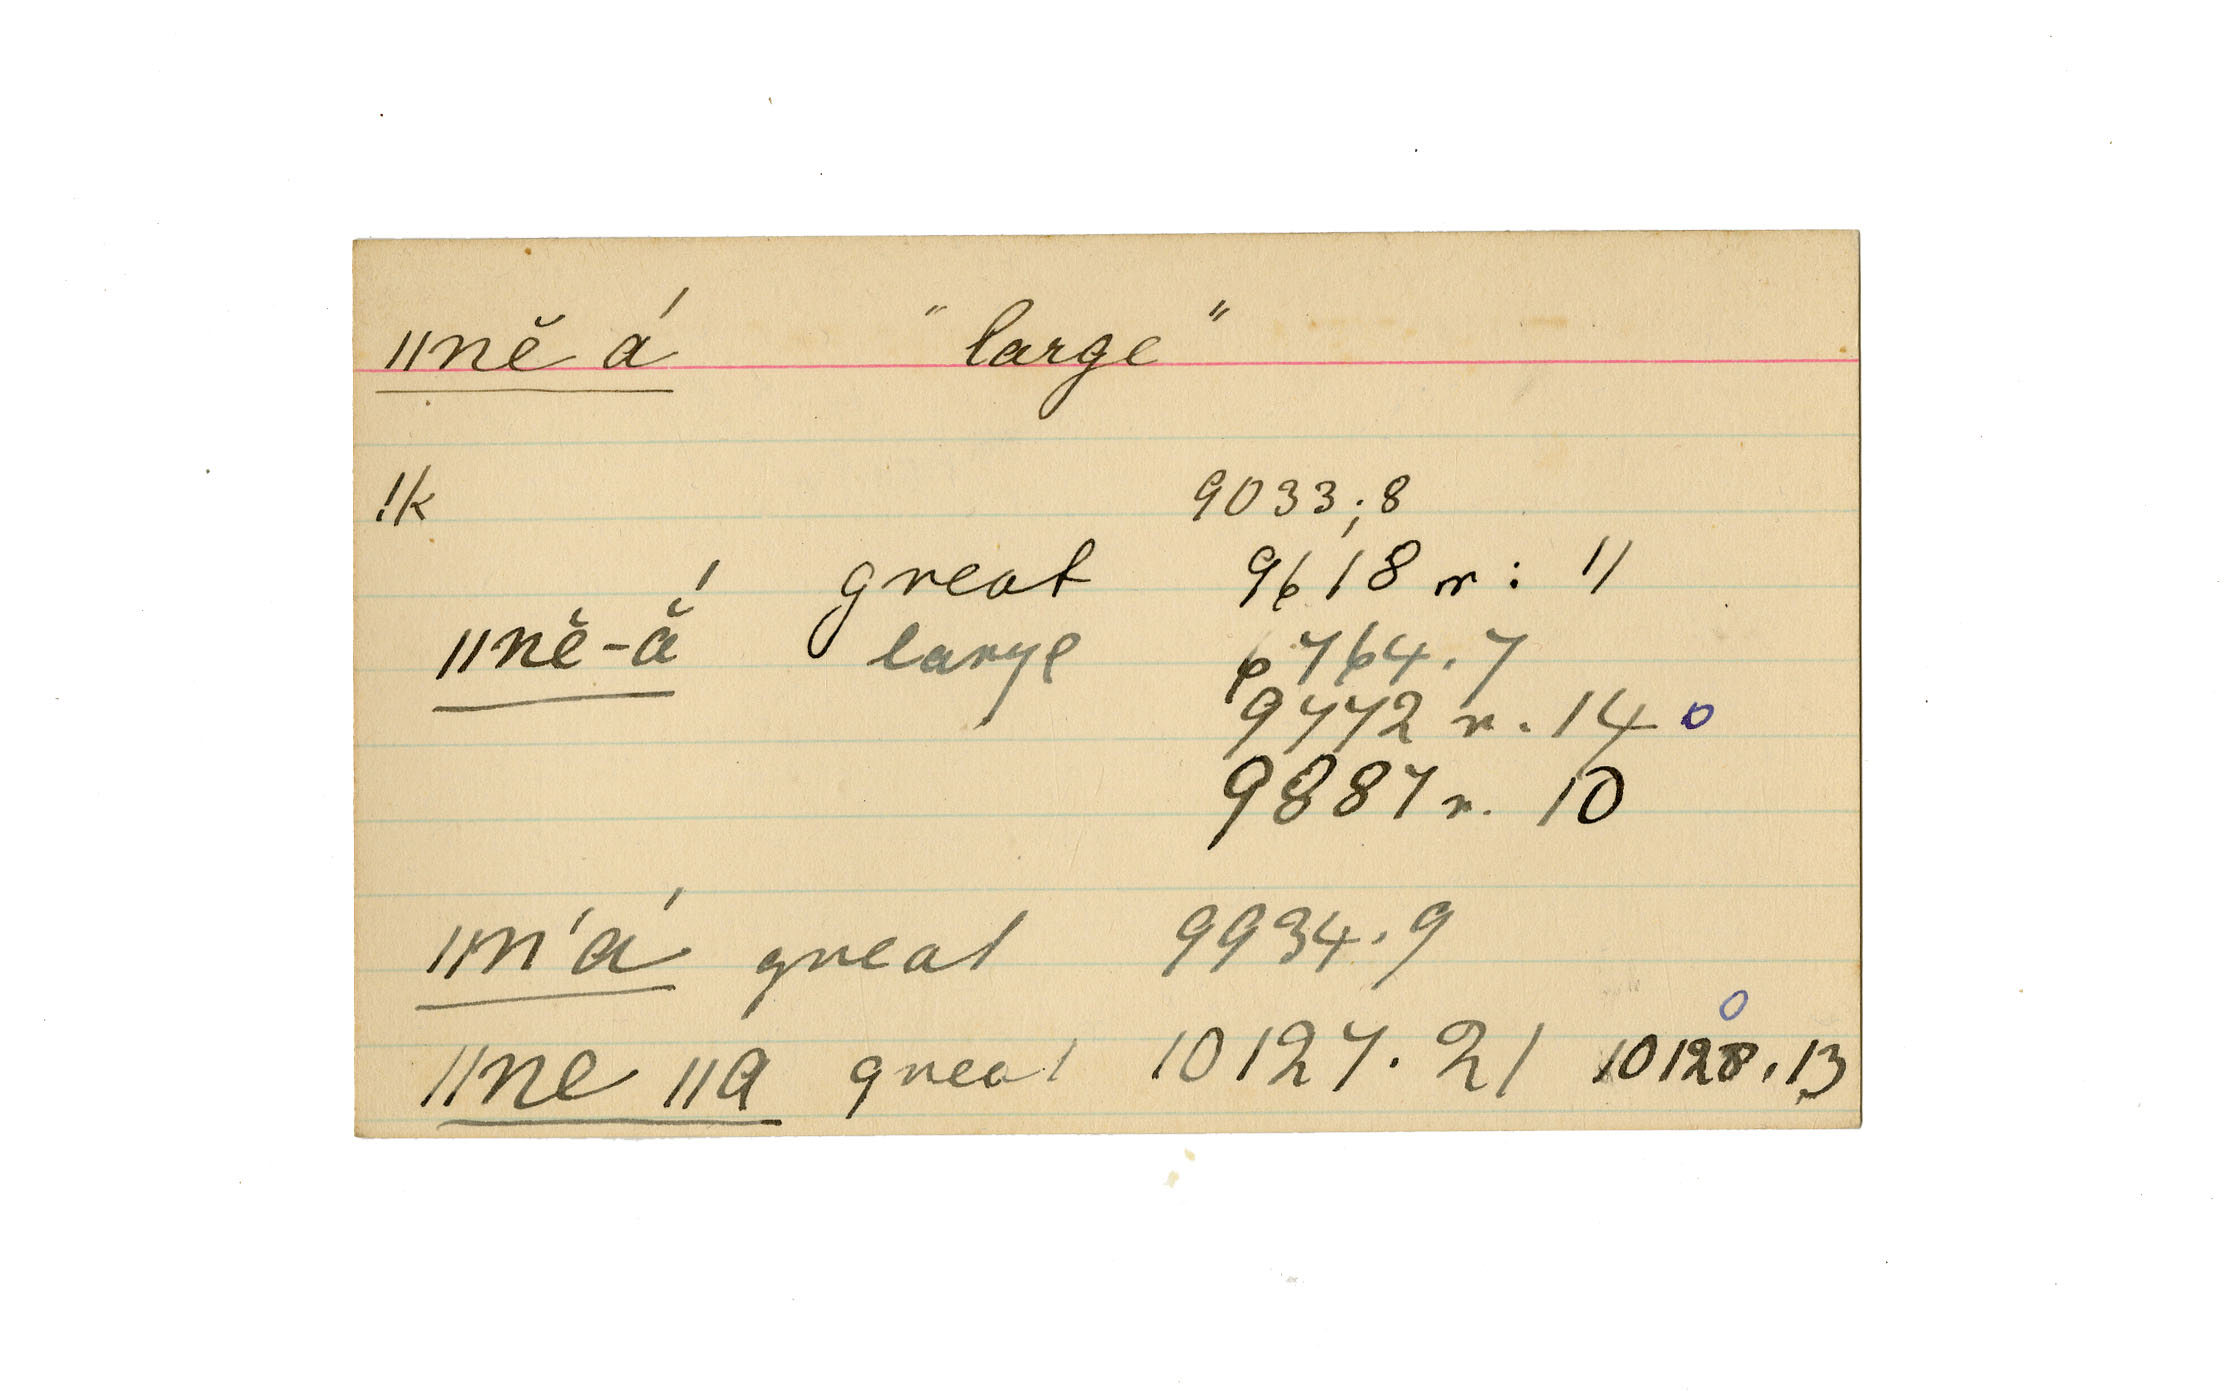 ǁně á "large"
!k 9033;8
great 9618 r: 11
ǁně-ắ large 9764.7
9772 r. 14 o
9887 r. 10
ǁn'á great 9934.9
o
ǁne ǁa great 10127.21 10128.13